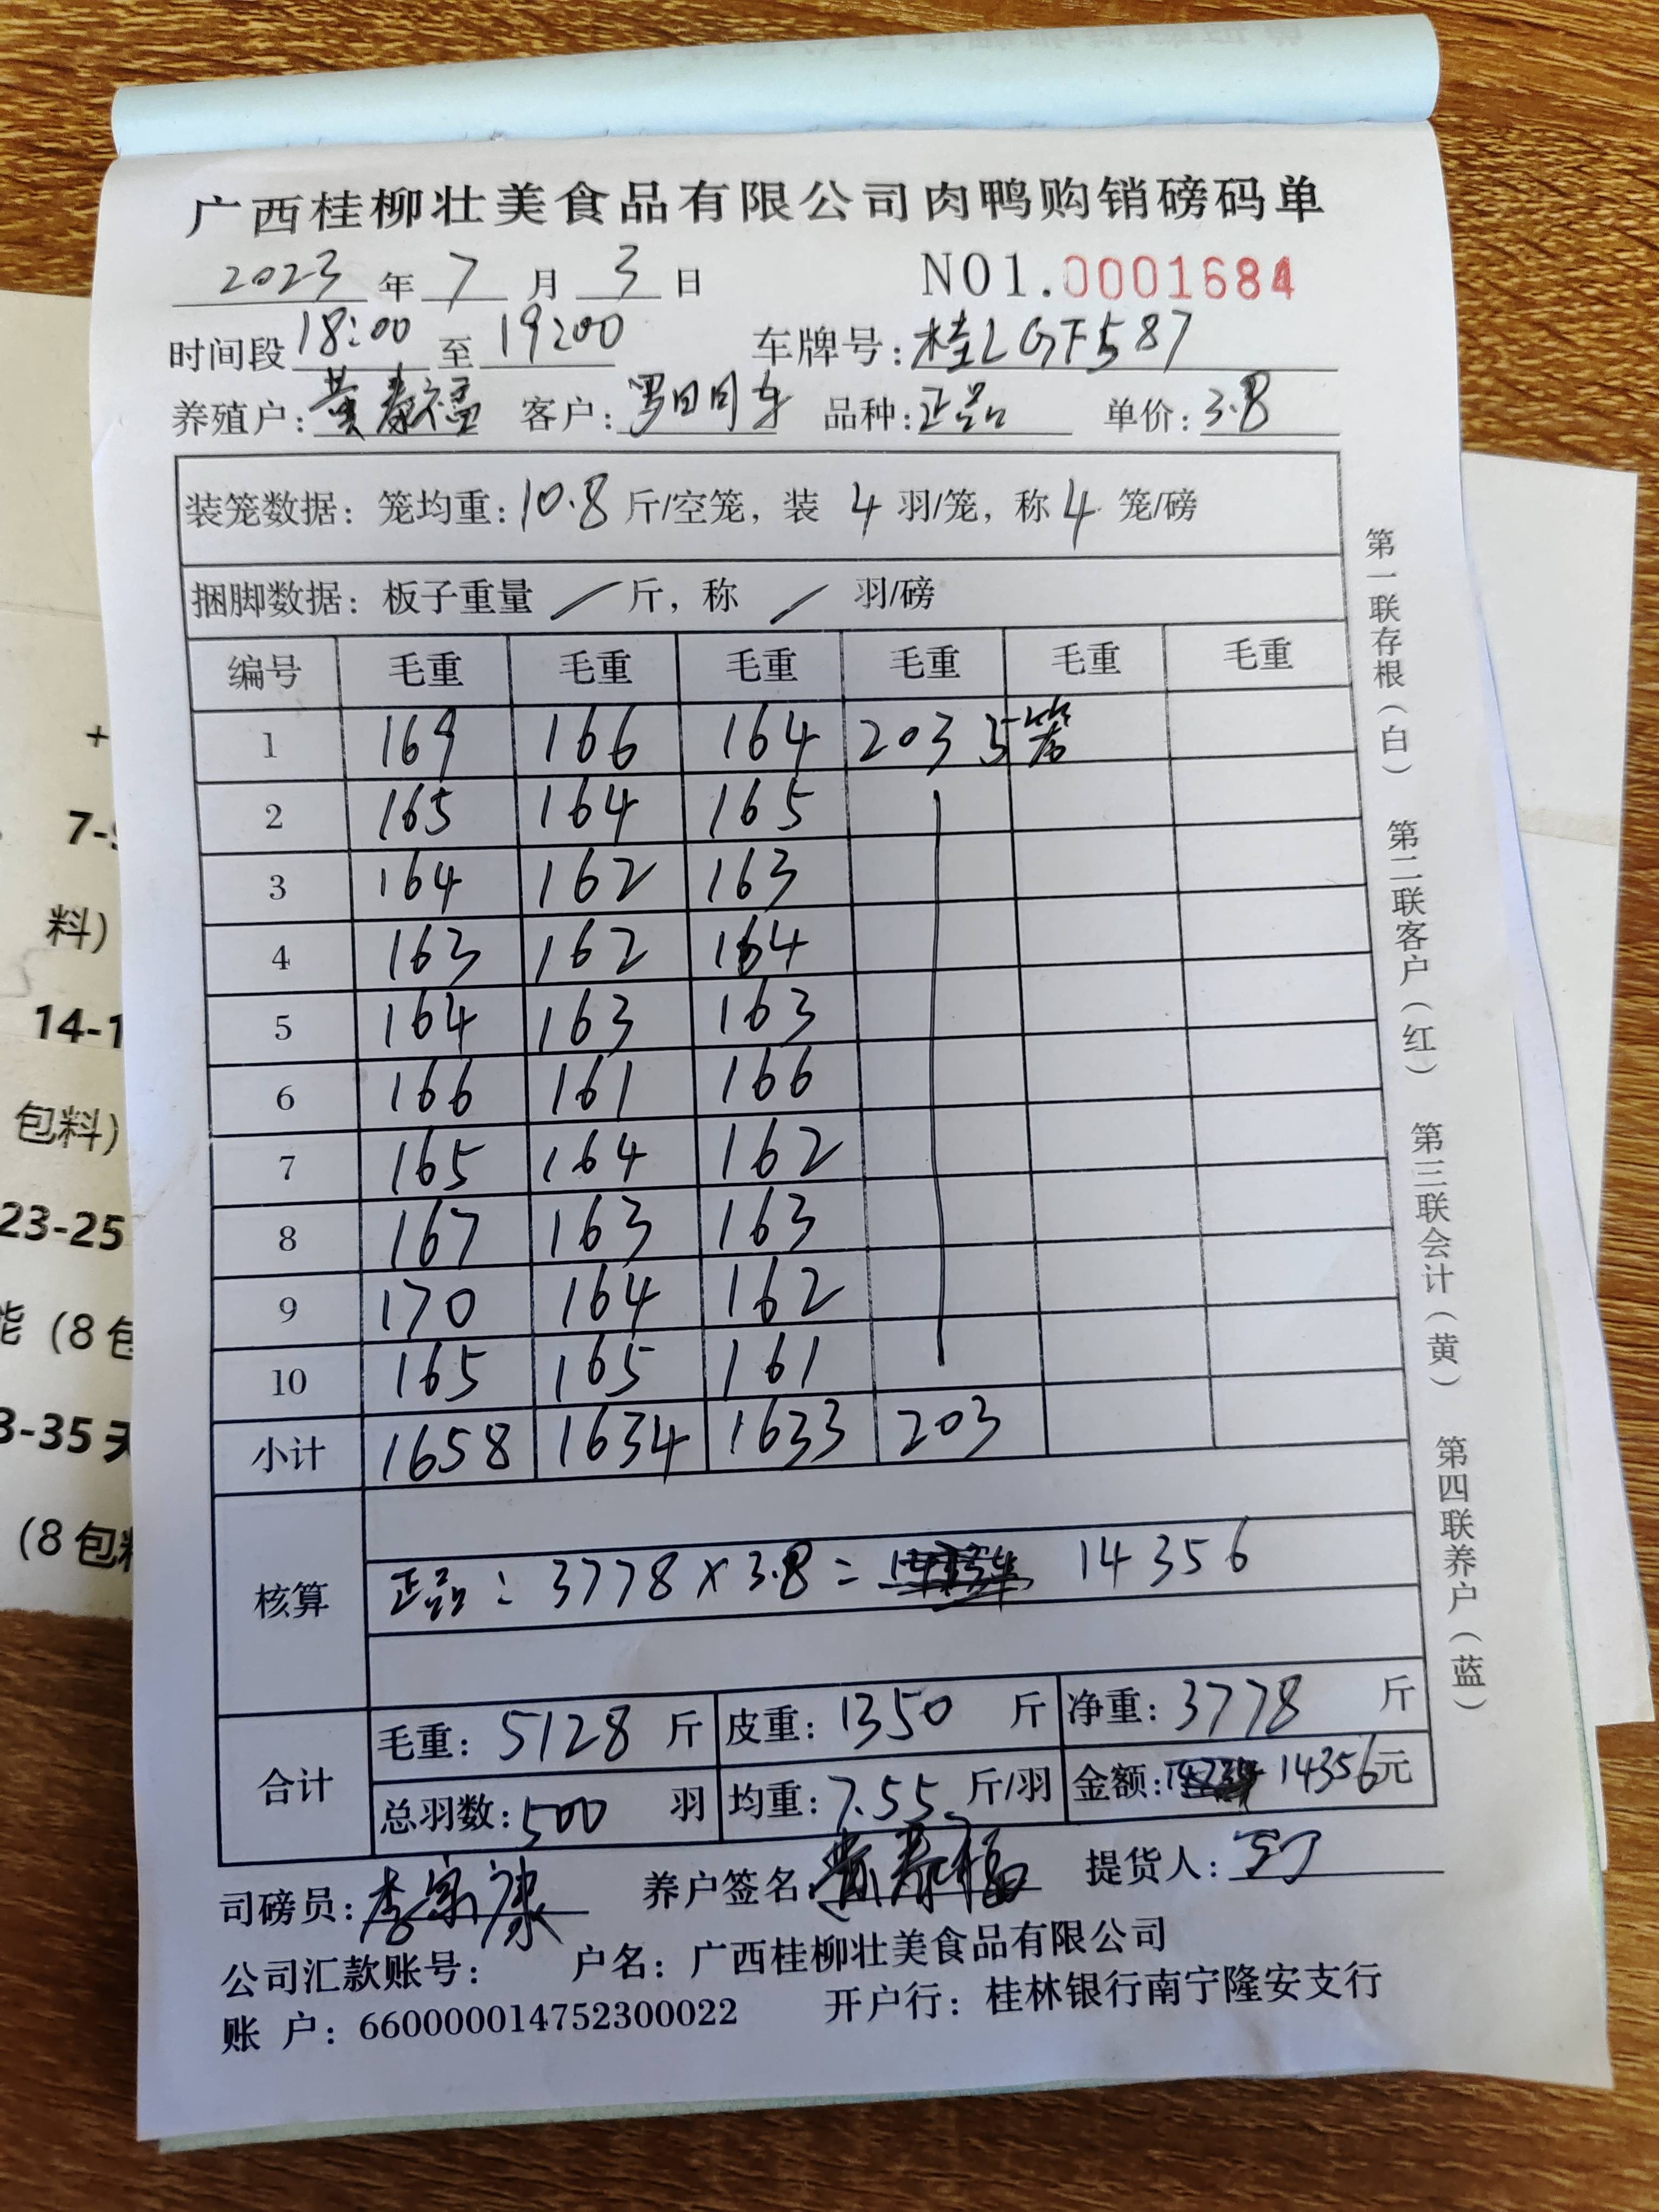 广西桂柳壮美食品有限公司肉鸭购销磅码单
2023年7月3日 NO1.0001684
时间段18:00至19:00 车牌号:桂LGF587
养殖户:黄泰福 客户: 品种:正品 单价:3.8
装笼数据:笼均重:10.8斤/空笼,装4羽/笼,称4笼/磅
捆脚数据:板子重量/斤,称/羽/磅
编号 毛重 毛重 毛重 毛重 毛重 毛重
1 169 166 164 203 5笼
2 165 164 165
3 164 162 163
4 163 162 164
5 164 163 163
6 166 161 166
7 165 164 162
8 167 163 163
9 170 164 162
10 165 165 161
小计 1658 1634 1633 203
核算
正品:3778×3.8= 14356
合计
毛重:5128斤 皮重:1350斤 净重:3778斤
总羽数:500羽 均重:7.55斤/羽 金额:14356元
司磅员: 养户签名:黄泰福 提货人:
公司汇款账号: 户名:广西桂柳壮美食品有限公司
账 户:660000014752300022 开户行:桂林银行南宁隆安支行
第一联存根(白) 第二联客户(红) 第三联会计(黄) 第四联养户(蓝)
+
料)
14-1
包料)
23-25
能(8包
3-35天
(8包料